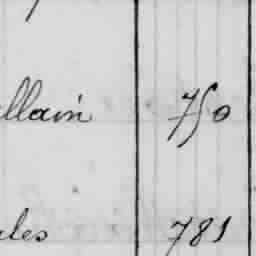 llain 750
les 781